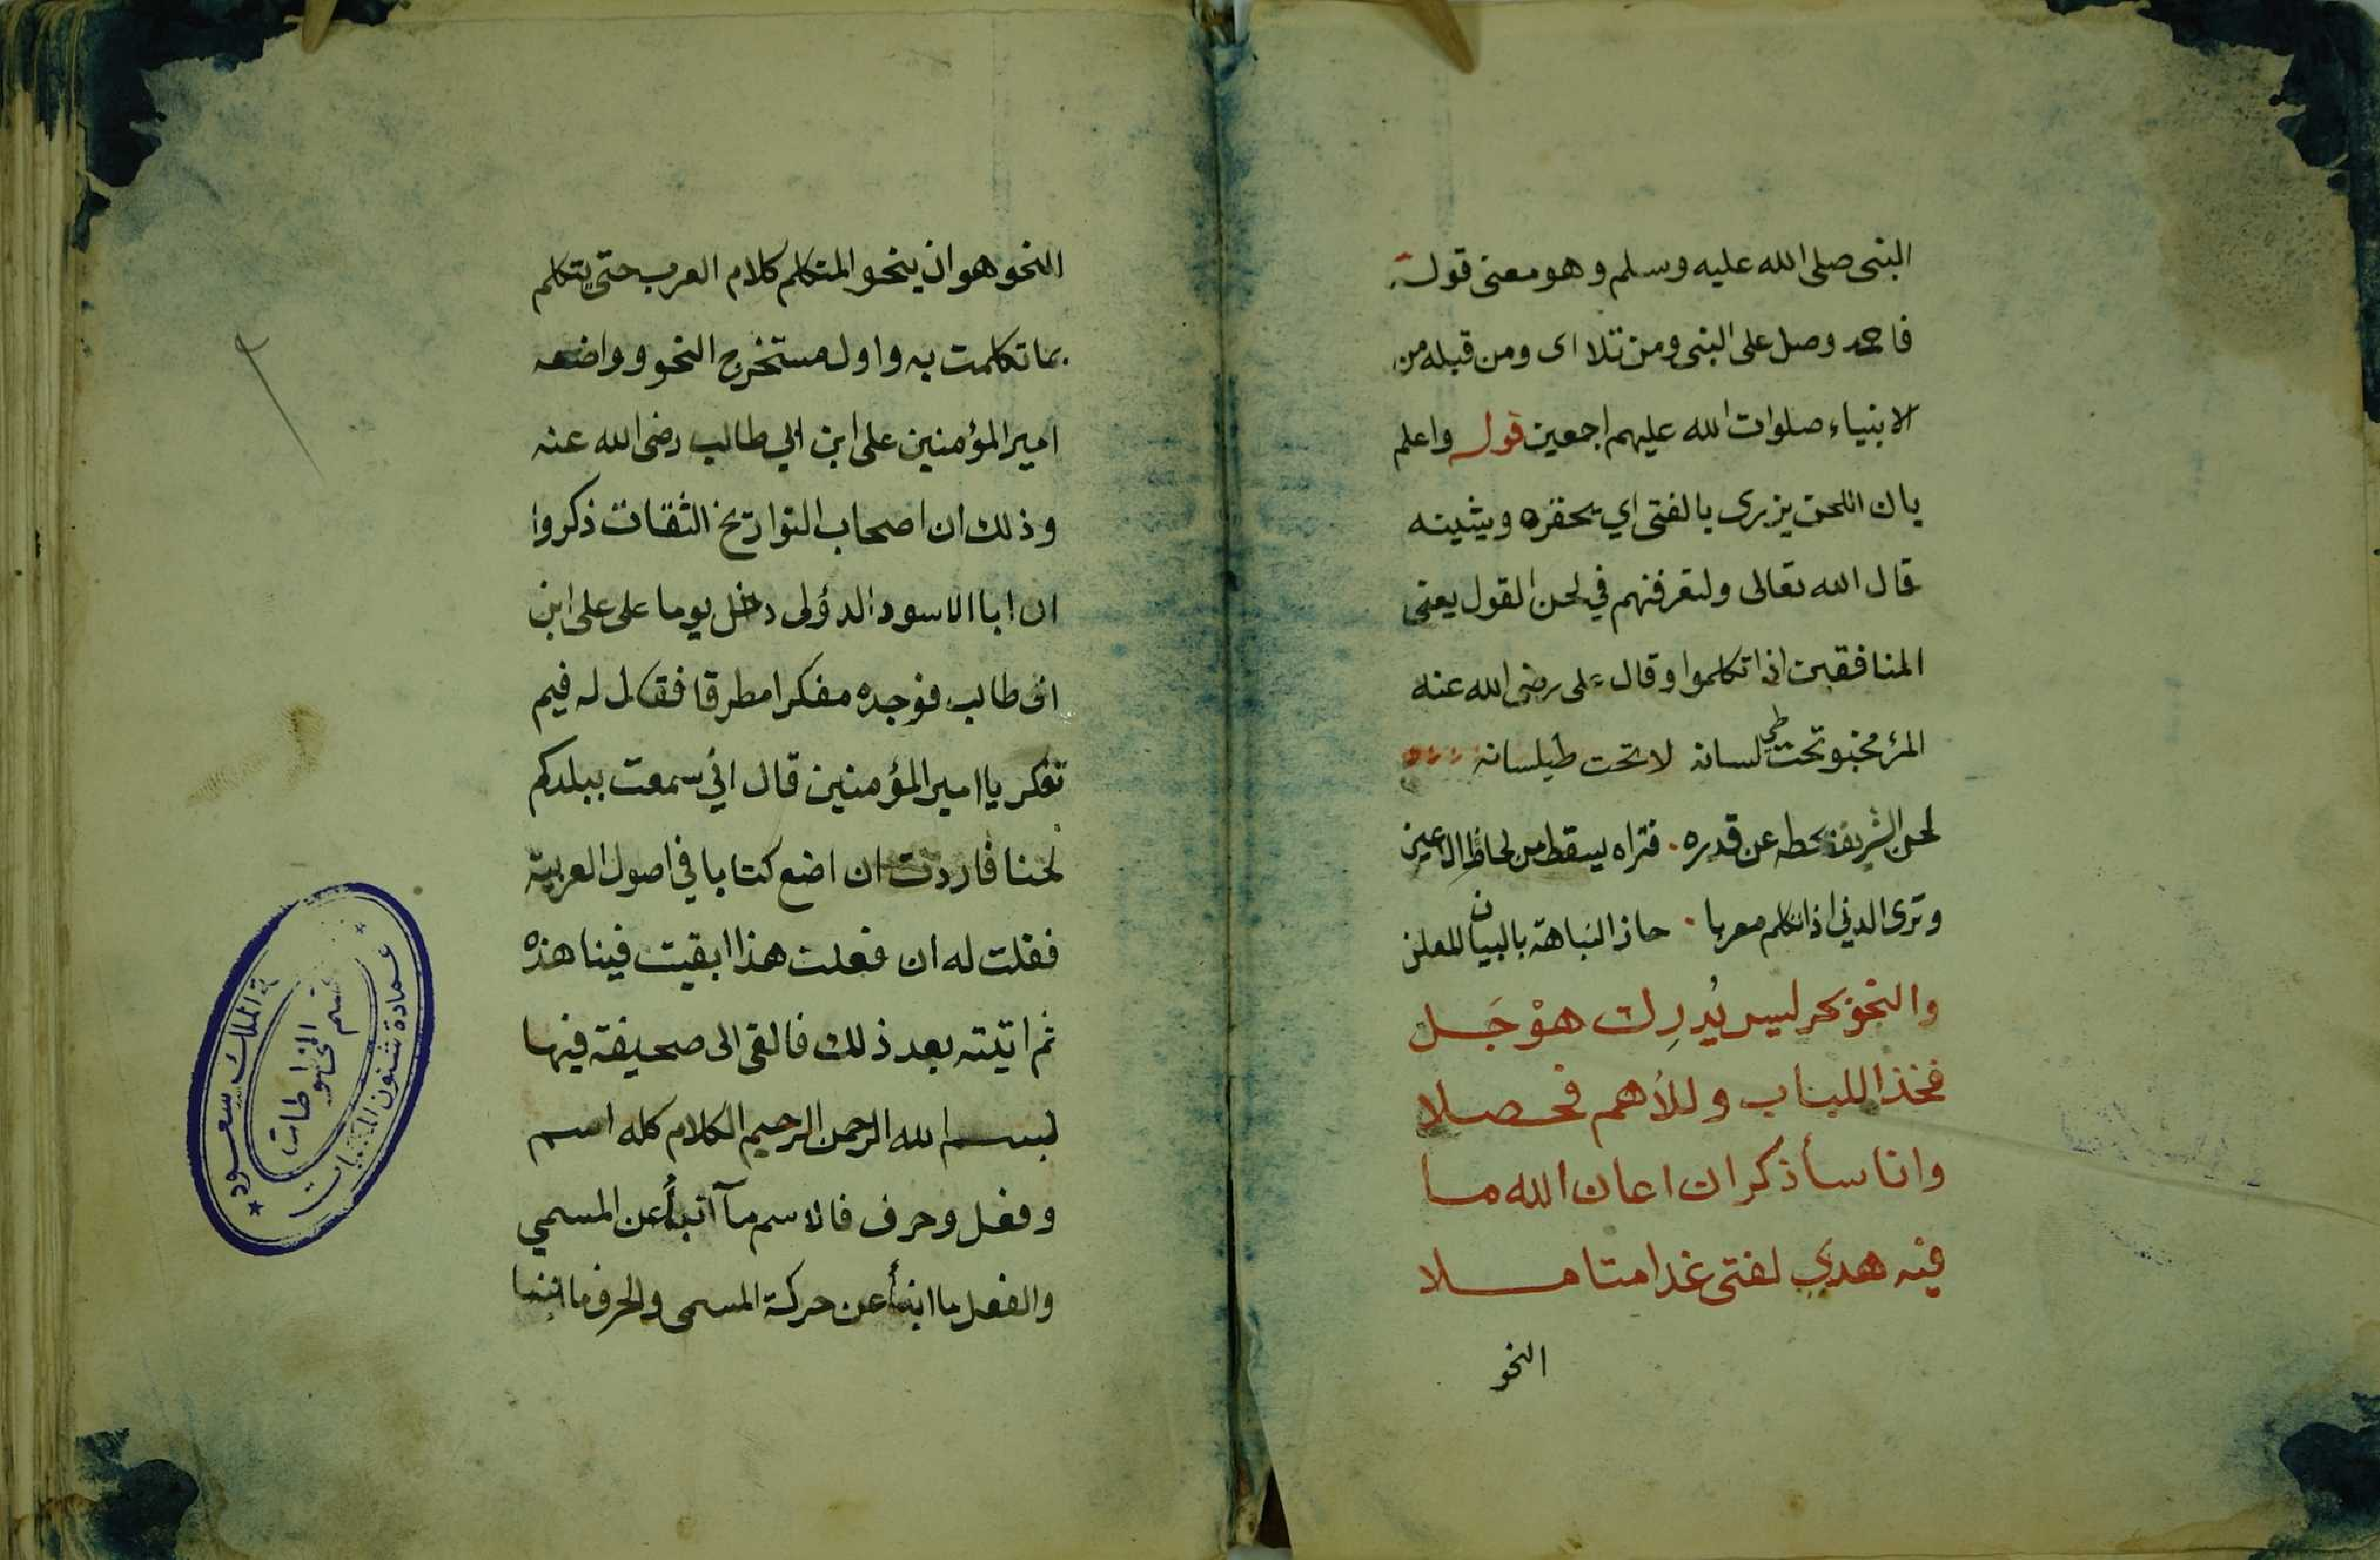 النبى صلى الله عليه وسلم وهو معنى قوله
فاحمد وصل على النبى ومن تلا اى ومن قبله من
الانبياء صلوات الله عليهم اجمعين قوله واعلم
بان اللحن يزرى بالفتى اي يحقره ويشينه
قال الله تعالى ولتعرفنهم في لحن القول يعنى
المنافقين اذا تكلموا وقال على رضى الله عنه
المرء مخبو تحت طي لسانه لا تحت طيلسانه
لحن الشريف يحطه عن قدره . فتراه يسقط من لحاظ الاعين
وترى الدني اذا تكلم معربا . حاز النباهة بالبيان المعلن
والنحو بحر ليس يُدرِك هوْجَل
فخذ اللباب وللأهم فحصلا
وانا سأذكر ان اعان الله ما
فيه هدي لفتى غدا متاملا
النحو
النحو هو ان ينحو المتكلم كلام العرب حتى يتكلم
بما تكلمت به واول مستخرج النحو وواضعه
امير المؤمنين على ابن ابي طالب رضى الله عنه
وذلك ان اصحاب التواريخ الثقات ذكروا
ان ابا الاسود الدؤلى دخل يوما على على ابن
ابى طالب فوجده مفكرا مطرقا فقال له فيم
تفكر يا امير المؤمنين قال اني سمعت ببلدكم
لحنا فاردت ان اضع كتابا في اصول العربية
فقلت له ان فعلت هذا ابقيت فينا هذه
ثم اتيته بعد ذلك فالقى الى صحيفة فيها
بسم الله الرحمن الرحيم الكلام كله اسم
وفعل وحرف فالاسم مآ انبأ عن المسمي
والفعل ما انبأ عن حركة المسمى والحرف ما انبا
الملك سعود
قسم المخطوطات
عمادة شئون المكتبات